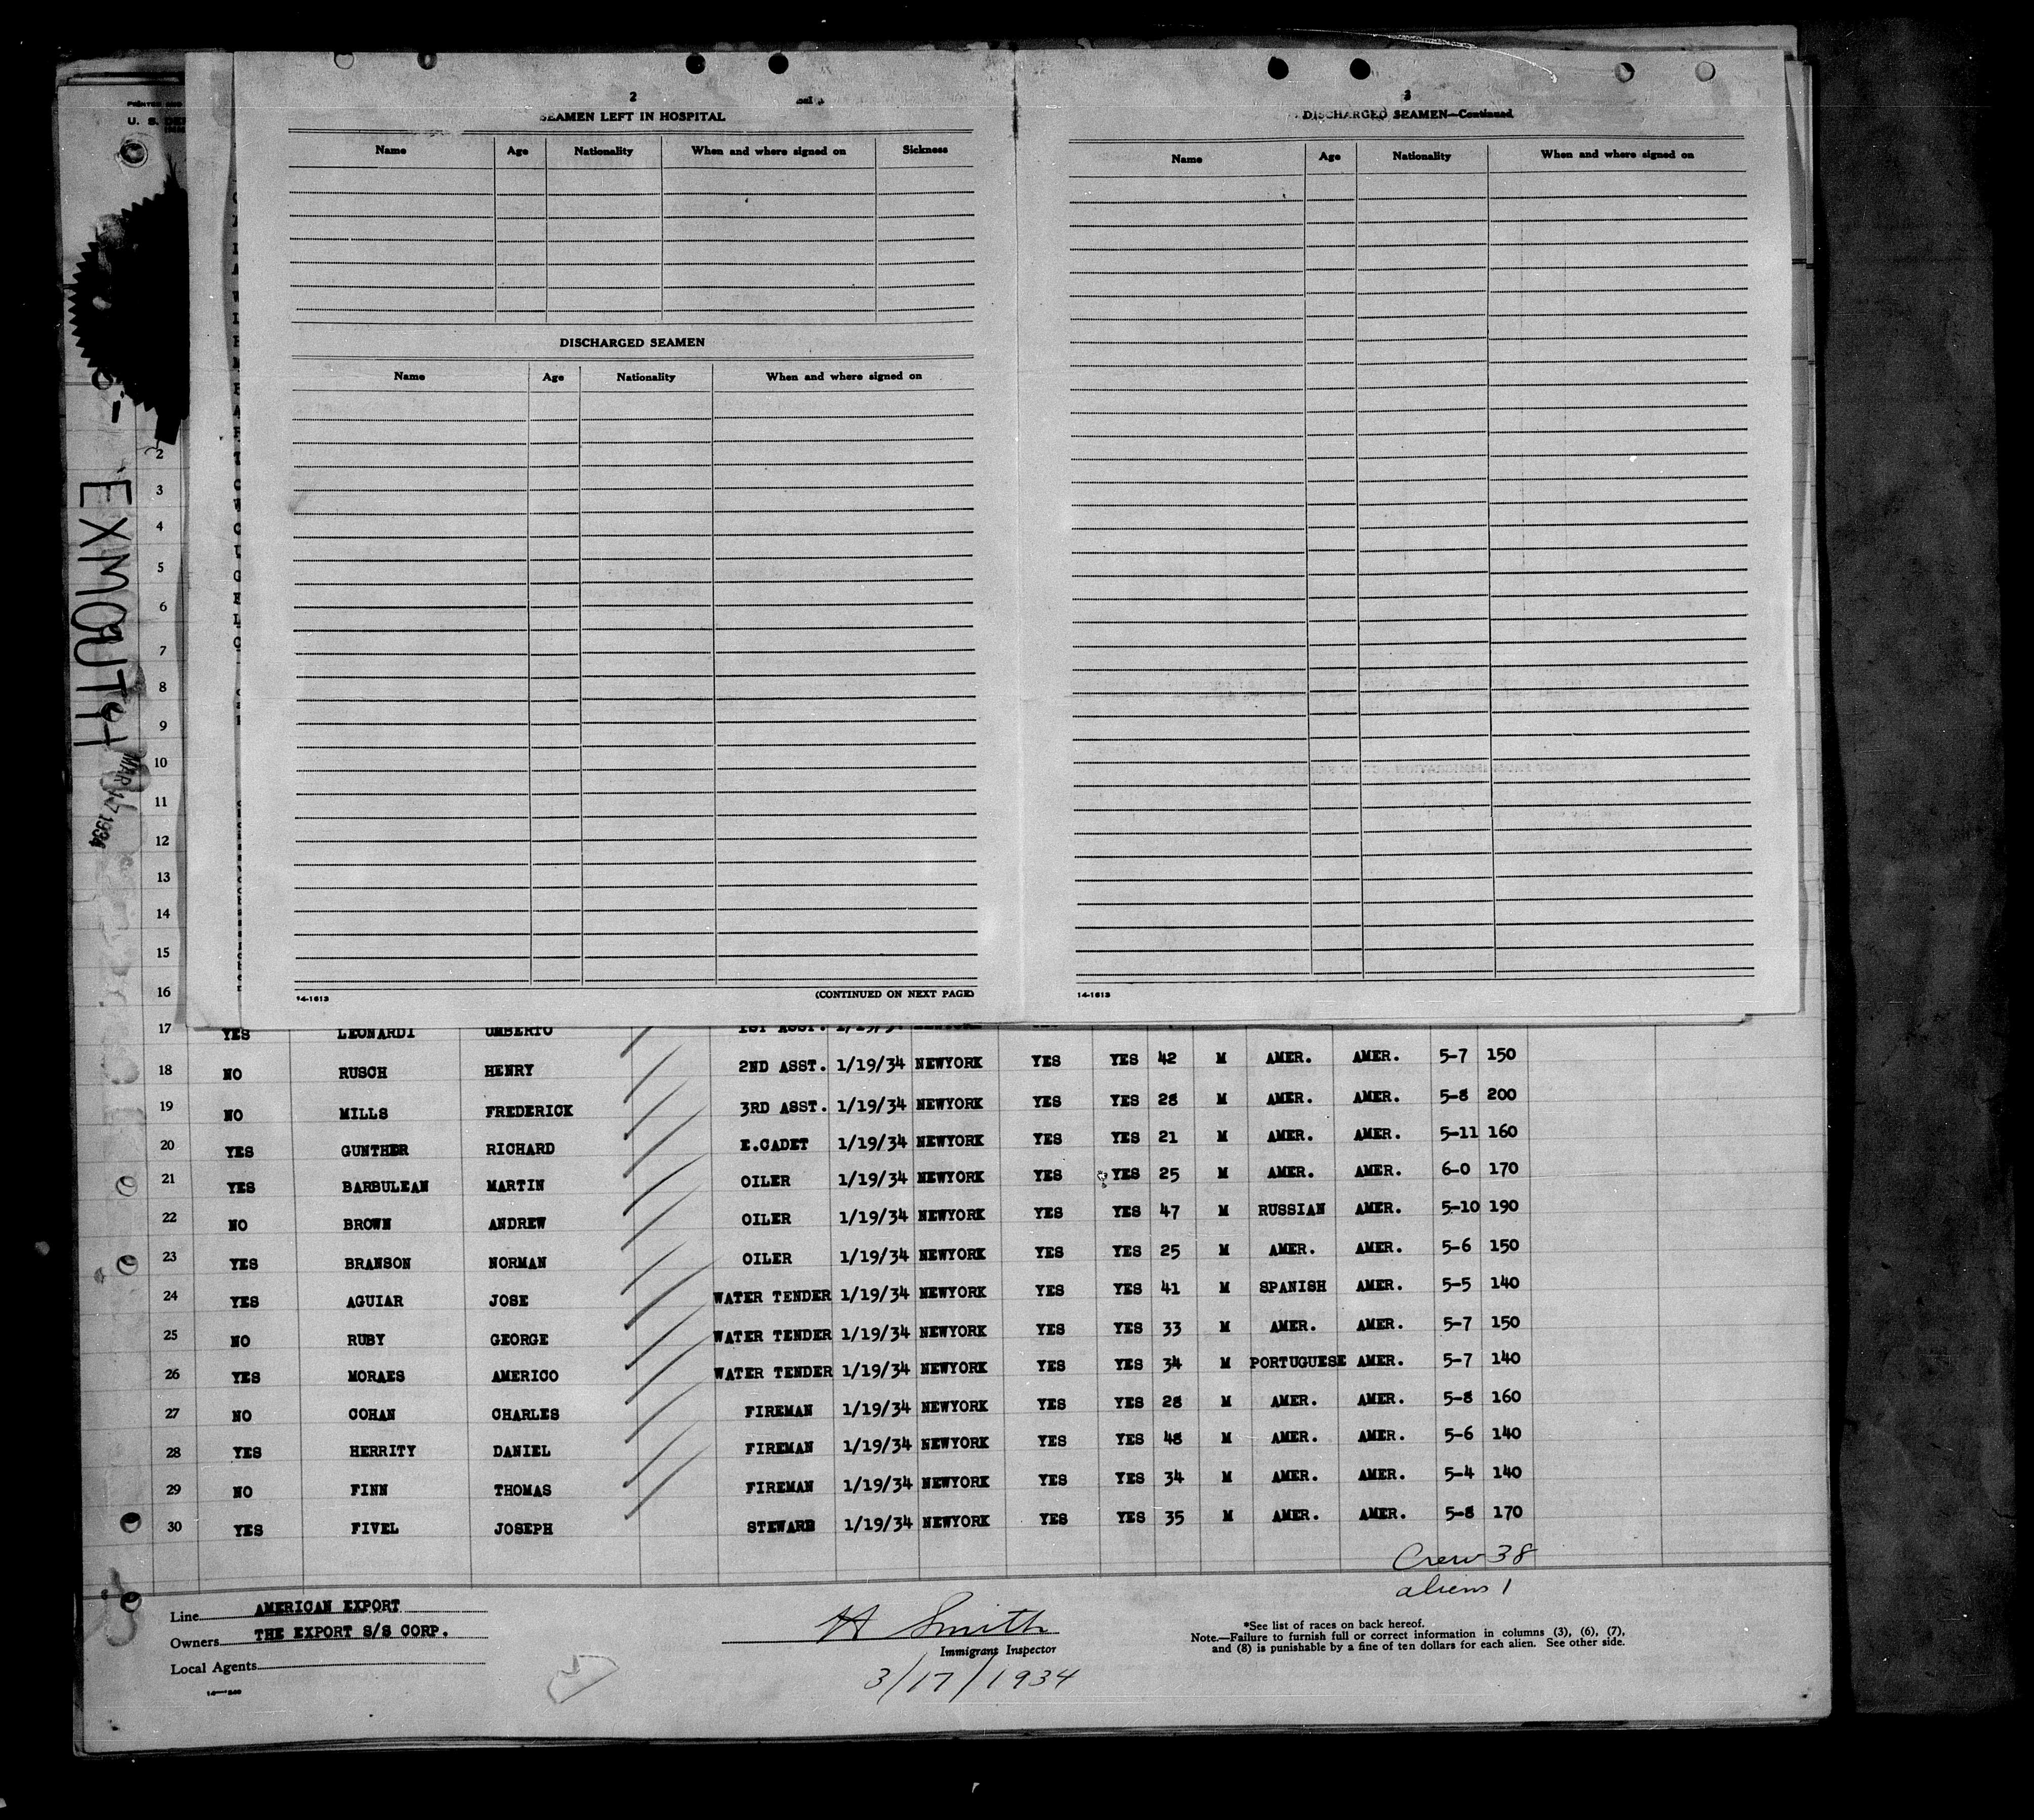 2
SEAMEN LEFT IN HOSPITAL
Name Age Nationality When and where signed on Sickness
DISCHARGED SEAMEN
Name Age Nationality When and where signed on
14-1613 (CONTINUED ON NEXT PAGE)
3
DISCHARGED SEAMEN—Continued
Name Age Nationality When and where signed on
14-1613
U. S.
EXMOUTH
MAR 17 1934
2
3
4
5
6
7
8
9
10
11
12
13
14
15
16
17 YES LEONARDI UMBERTO 1ST ASST.
18 NO RUSCH HENRY 2ND ASST. 1/19/34 NEWYORK YES YES 42 M AMER. AMER. 5-7 150
19 NO MILLS FREDERICK 3RD ASST. 1/19/34 NEWYORK YES YES 28 M AMER. AMER. 5-8 200
20 YES GUNTHER RICHARD E.CADET 1/19/34 NEWYORK YES YES 21 M AMER. AMER. 5-11 160
21 YES BARBULEAN MARTIN OILER 1/19/34 NEWYORK YES YES 25 M AMER. AMER. 6-0 170
22 NO BROWN ANDREW OILER 1/19/34 NEWYORK YES YES 47 M RUSSIAN AMER. 5-10 190
23 YES BRANSON NORMAN OILER 1/19/34 NEWYORK YES YES 25 M AMER. AMER. 5-6 150
24 YES AGUIAR JOSE WATER TENDER 1/19/34 NEWYORK YES YES 41 M SPANISH AMER. 5-5 140
25 NO RUBY GEORGE WATER TENDER 1/19/34 NEWYORK YES YES 33 M AMER. AMER. 5-7 150
26 YES MORAES AMERICO WATER TENDER 1/19/34 NEWYORK YES YES 34 M PORTUGUESE AMER. 5-7 140
27 NO COHAN CHARLES FIREMAN 1/19/34 NEWYORK YES YES 28 M AMER. AMER. 5-8 160
28 YES HERRITY DANIEL FIREMAN 1/19/34 NEWYORK YES YES 48 M AMER. AMER. 5-6 140
29 NO FINN THOMAS FIREMAN 1/19/34 NEWYORK YES YES 34 M AMER. AMER. 5-4 140
30 YES FIVEL JOSEPH STEWARD 1/19/34 NEWYORK YES YES 35 M AMER. AMER. 5-8 170
Crew 38
aliens 1
Line AMERICAN EXPORT
Owners THE EXPORT S/S CORP.
Local Agents
H Smith
Immigrant Inspector
3/17/1934
*See list of races on back hereof.
Note.—Failure to furnish full or correct information in columns (3), (6), (7),
and (8) is punishable by a fine of ten dollars for each alien. See other side.